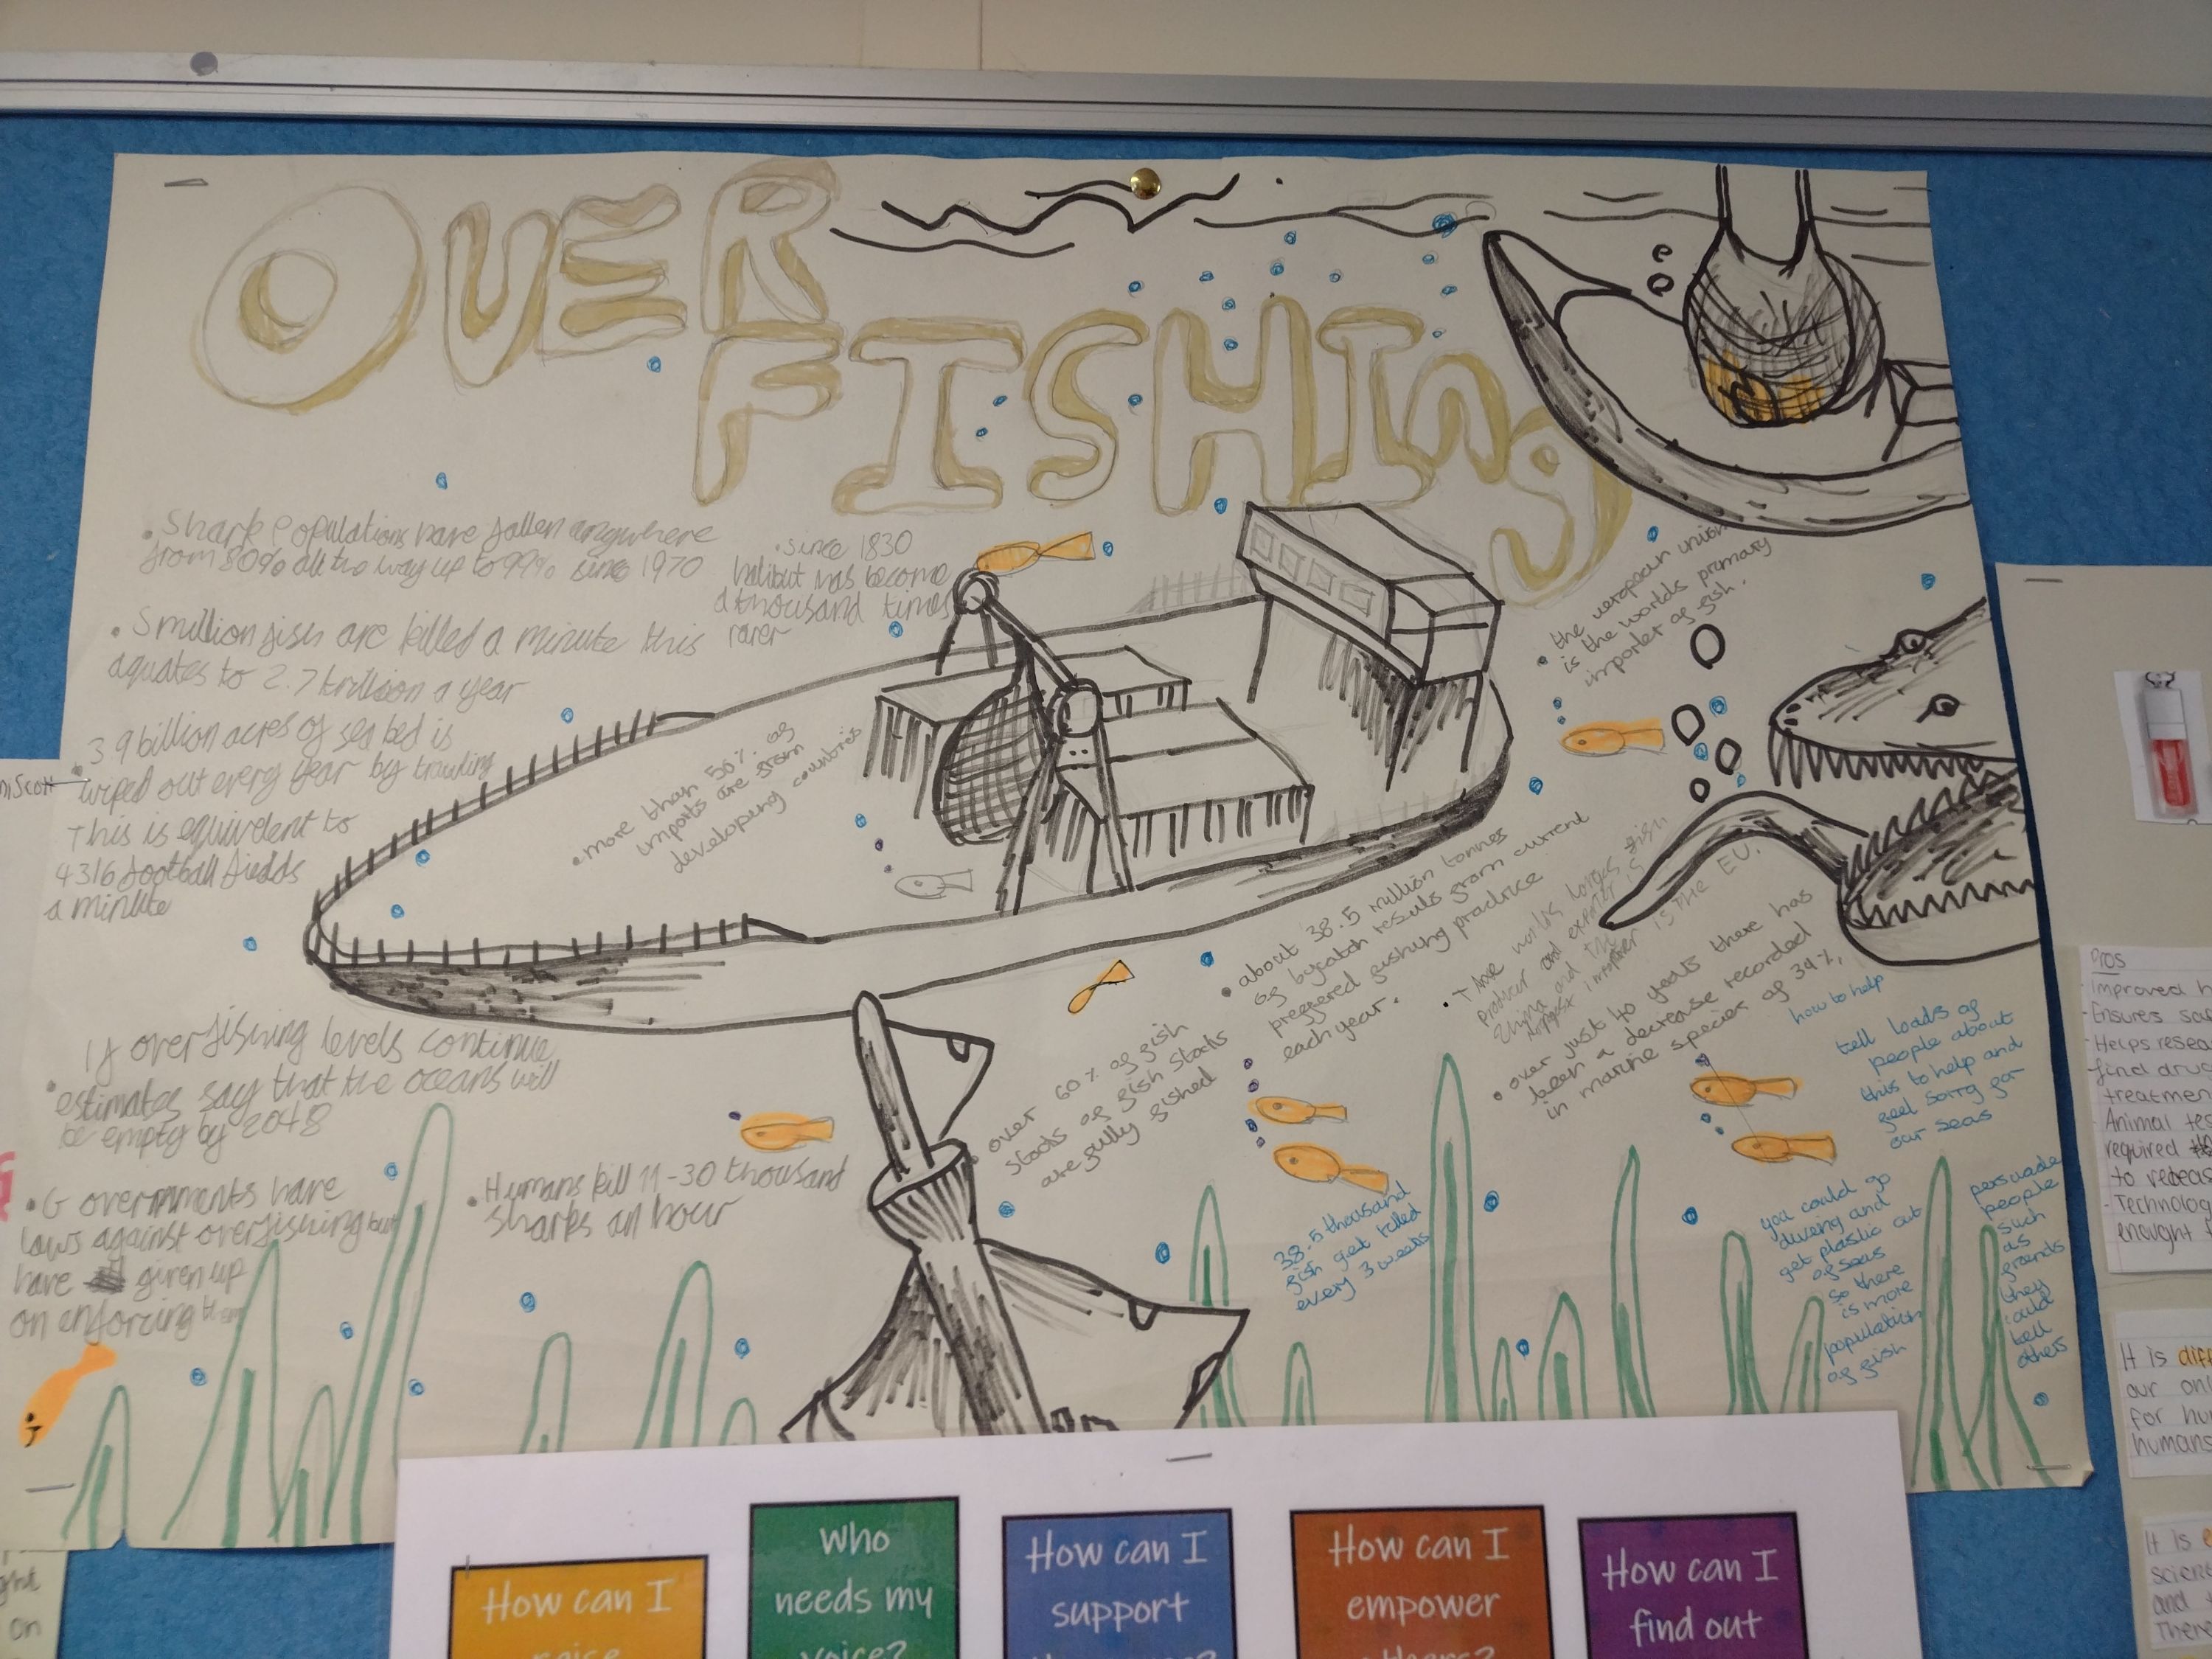 OVER
FISHIng
• Shark Populations have fallen anywhere
from 80% all the way up to 99% since 1970
• 5 million fish are killed a minute this
aquates to 2.7 trillion a year
• 3.9 billion acres of sea bed is
wiped out every year by trawling
This is equivelent to
4316 football fields
a minute
• since 1830
halibut has become
a thousand times
rarer
• the europeean union
is the worlds primary
importer of fish.
• more than 50% of
imports are from
developing countries
• about 38.5 million tonnes
of bycatch results from current
preffered fishing practice
each year.
• The worlds larges fish
and exporter is
China and the
importer is THE EU.
• over just 40 years there has
been a decrease recorded
in marine species of 39%.
• If overfishing levels continue
estimates say that the oceans will
be empty by 2048
• Governments have
laws against overfishing but
have given up
on enforcing them
• Humans kill 11-30 thousand
sharks an hour
• over 60% of fish
stocks of fish stocks
are fully fished
38.5 thousand
fish get killed
every 3 weeks
how to help
tell loads of
people about
this to help and
feel sorry for
our seas
you could go
diving and
get plastic out
of seas
so there
is more
population
of fish
persuade
people
such
as
friends
they
could
tell
others
Pros
Improved h
- Ensures sa
- Helps resea
find drug
treatmen
- Animal tes
required
to releas
- Technolog
enought
It is diff
our onl
for hu
humans
It is
scienc
and
There
on
How can I
Who
needs my
voice?
How can I
support
How can I
empower
others?
How can I
find out